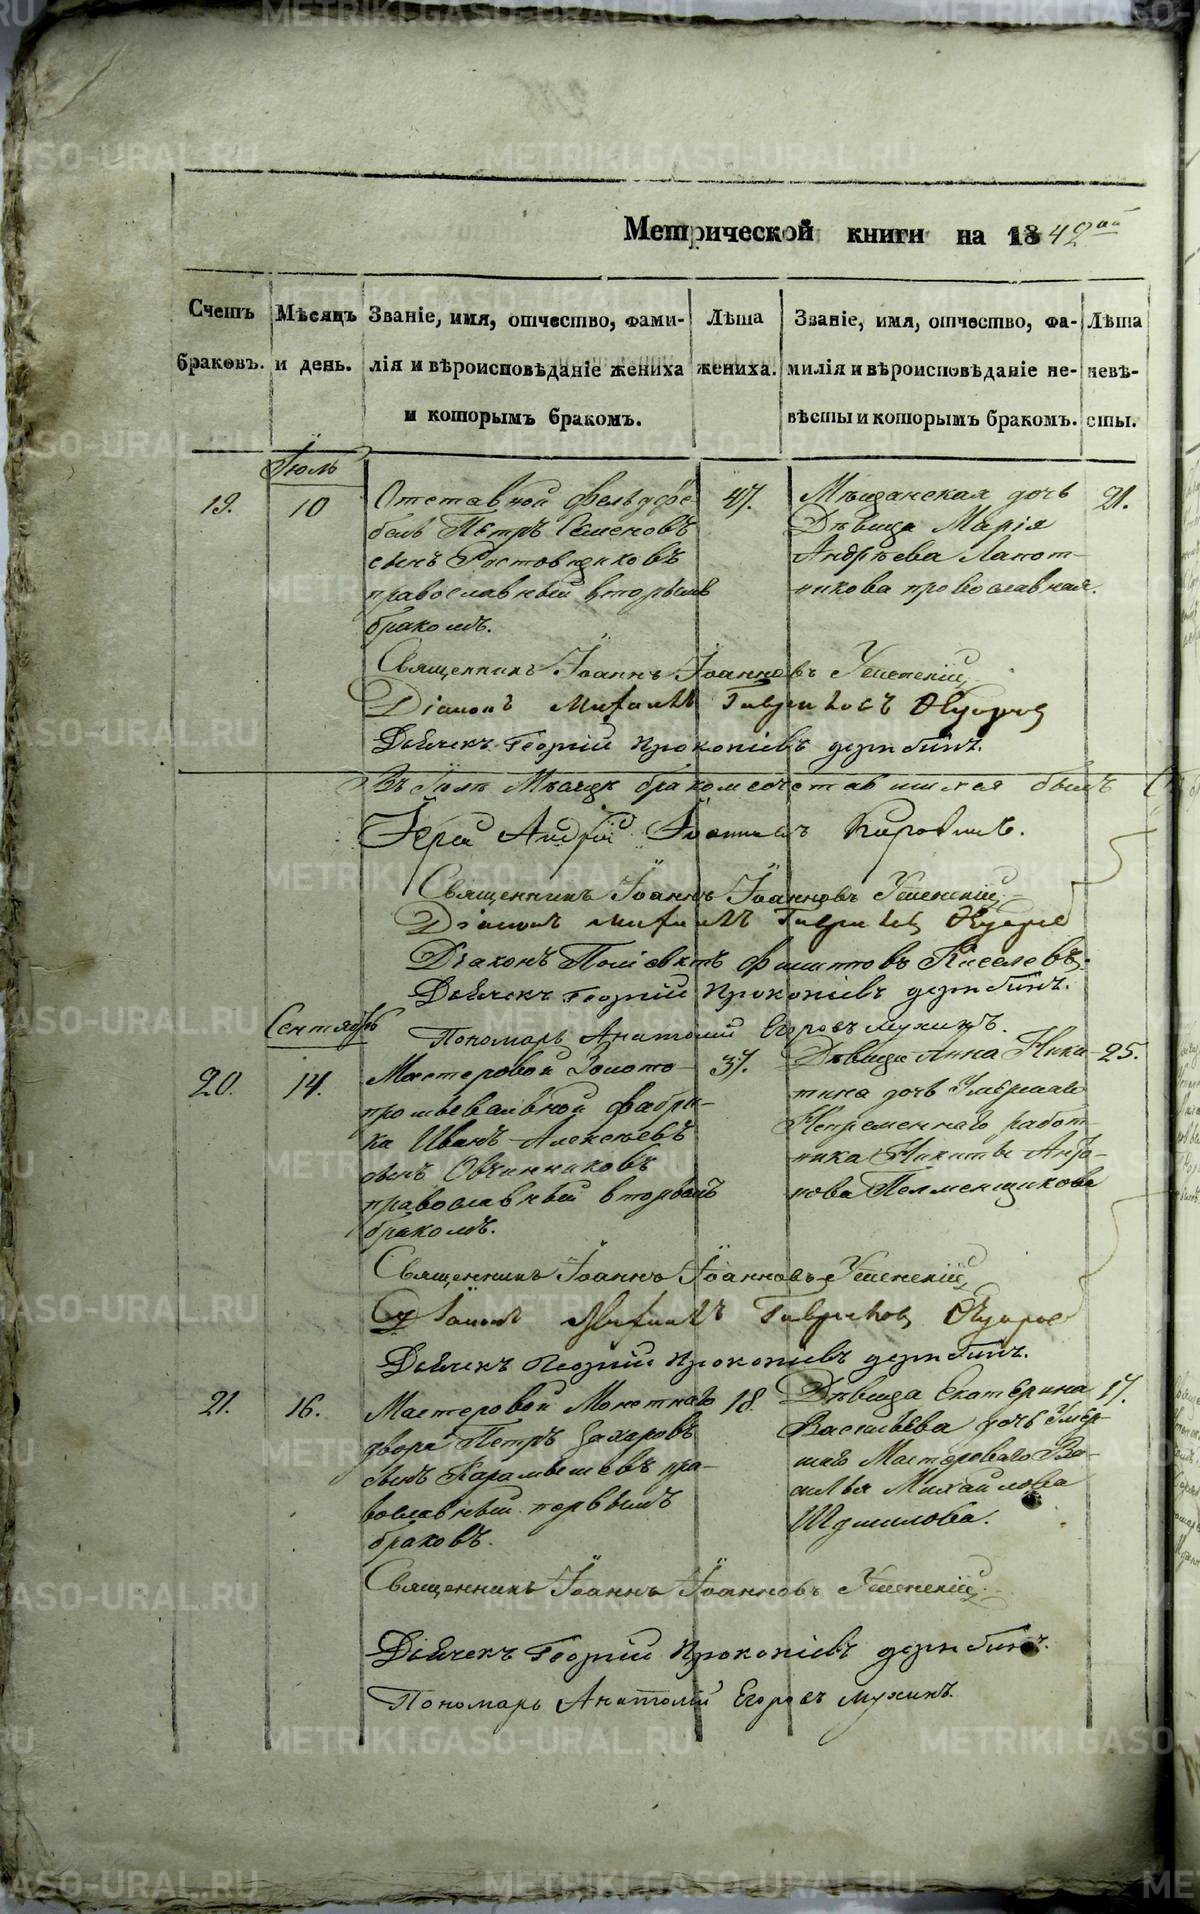 Метрической книги на 1842ой
Счетъ браковъ.
Мѣсяцъ и день.
Званіе, имя, отчество, фами-
лія и вѣроисповѣданіе жениха
и которымъ бракомъ.
Лѣта
жениха.
Званіе, имя, отчество, фа-
милія и вѣроисповѣданіе не-
вѣсты и которымъ бракомъ.
Лѣта
невѣ-
сты.
Іюль
19.
10
Отставной фельдфе
бель Петръ Семеновъ
сынъ Ростовщиковъ
православный вторымъ
бракомъ.
47.
Мѣщанская дочь
Дѣвица Марія
Андрѣева Лапот-
никова православная.
21.
Священникъ Іоаннъ Іоанновъ Успенскій
Діаконъ Михаилъ Гавриловъ
Дьячекъ Георгій Прокопіевъ Дерябинъ.
Въ Іюлѣ Мѣсяцѣ бракомсочетавшихся былъ
Іерей Андрей Іоанновъ
Священникъ Іоаннъ Іоанновъ Успенскій
Діаконъ Михаилъ Гавриловъ
Діаконъ Поліевктъ Филиповъ Киселевъ
Дьячекъ Георгій Прокопіевъ Дерябинъ.
Пономарь Анатолій Егоровъ Мухинъ.
Сентябрь
20.
14.
Мастеровой Золото-
промывальной фабри-
ки Иванъ Алексѣевъ
сынъ Овчинниковъ
православный вторымъ
бракомъ.
37.
Дѣвица Анна Ники-
тина дочь Умершаго
Непременнаго работ-
ника Никиты
Пелменщикова
25.
Священникъ Іоаннъ Іоанновъ Успенскій
Діаконъ Михаилъ Гавриловъ
Дьячекъ Георгій Прокопіевъ Дерябинъ.
21.
16.
Мастеровой Монетнаго
двора Петръ Захаровъ
сынъ Карамышевъ пра-
вославный первымъ
бракомъ.
18.
Дѣвица Екатерина
Васильева дочь Умер-
шаго Мастероваго Ва-
силья Михайлова
Шумилова.
17.
Священникъ Іоаннъ Іоанновъ Успенскій
Дьячекъ Георгій Прокопіевъ Дерябинъ.
Пономарь Анатолій Егоровъ Мухинъ.
METRIKI.GASO-URAL.RU